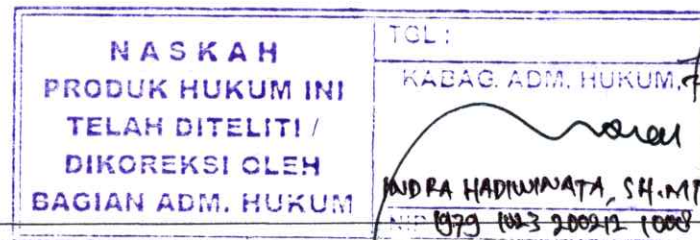 NASKAH
PRODUK HUKUM INI
TELAH DITELITI /
DIKOREKSI OLEH
BAGIAN ADM. HUKUM
TGL :
KABAG. ADM. HUKUM,
INDRA HADIWINATA, SH.MH
NIP 1979 1023 200212 1008